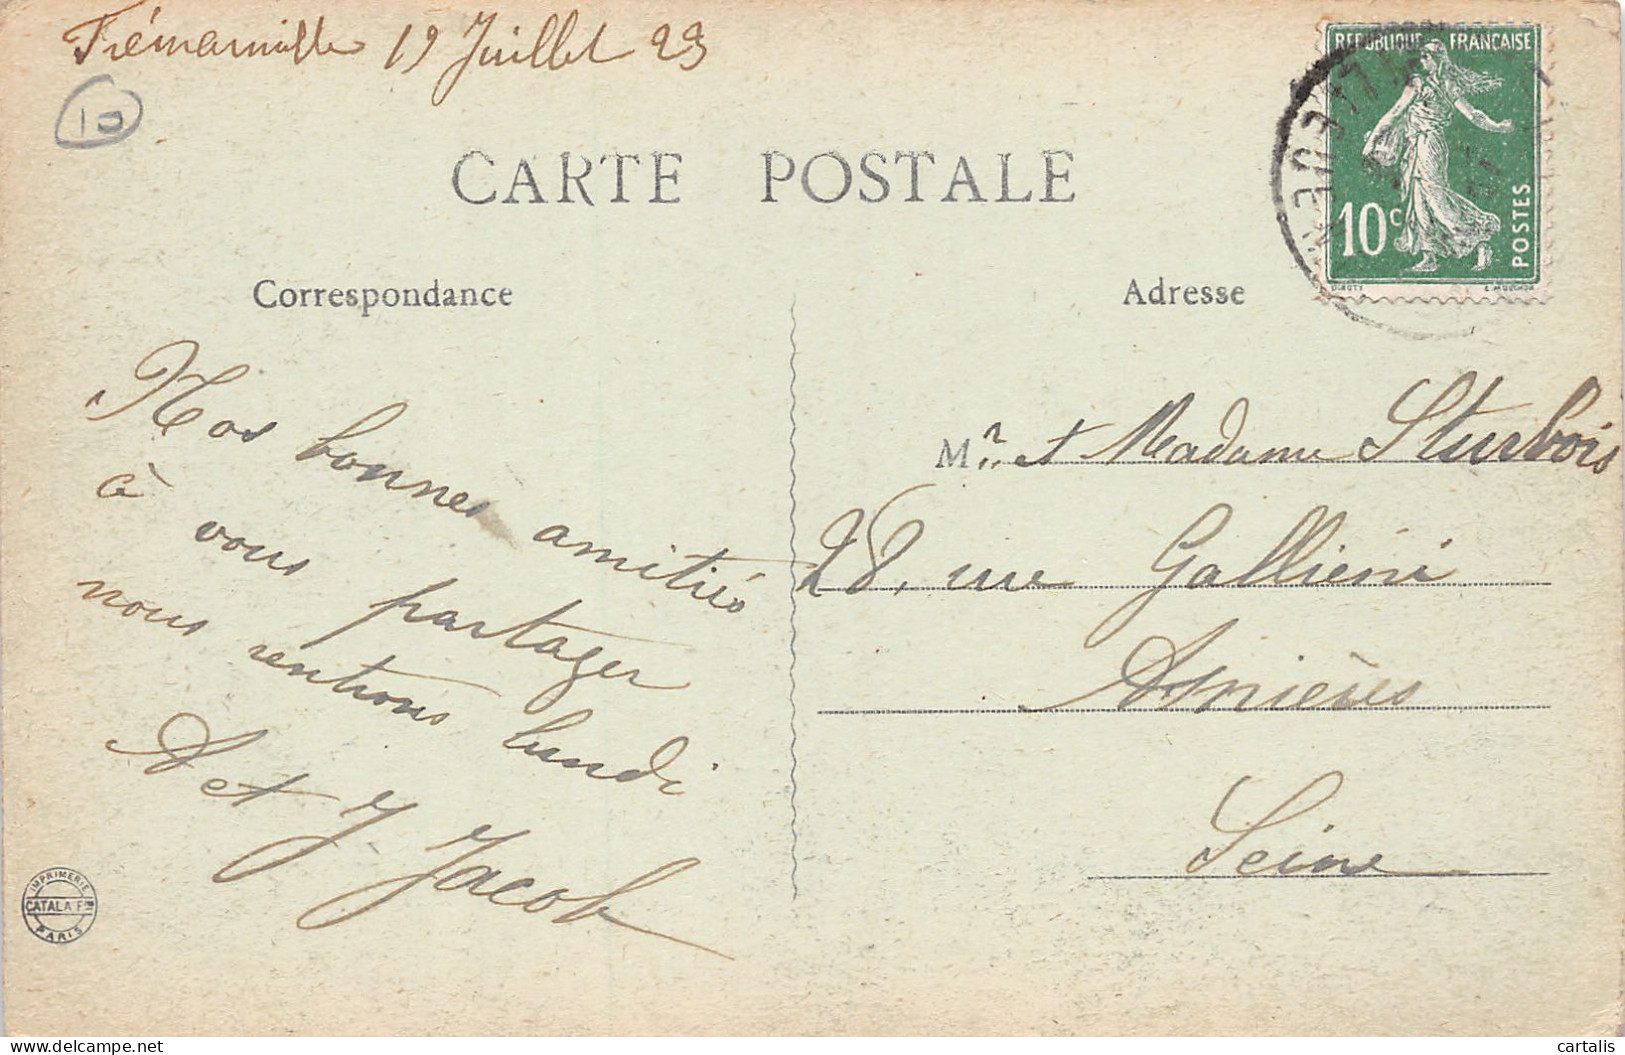 Frémainville 19 Juillet 23
10
CARTE POSTALE
REPUBLIQUE FRANÇAISE
10c
POSTES
E. MOUCHON
Correspondance
Adresse
Nos bonnes amitiés
à vous partager
nous rentrons lundi
A et J. Jacob
Mr. et Madame Sturbois
28, rue Galliéni
Asnières
Seine
IMPRIMERIE
CATALA Fres
PARIS
delcampe.net
cartalis